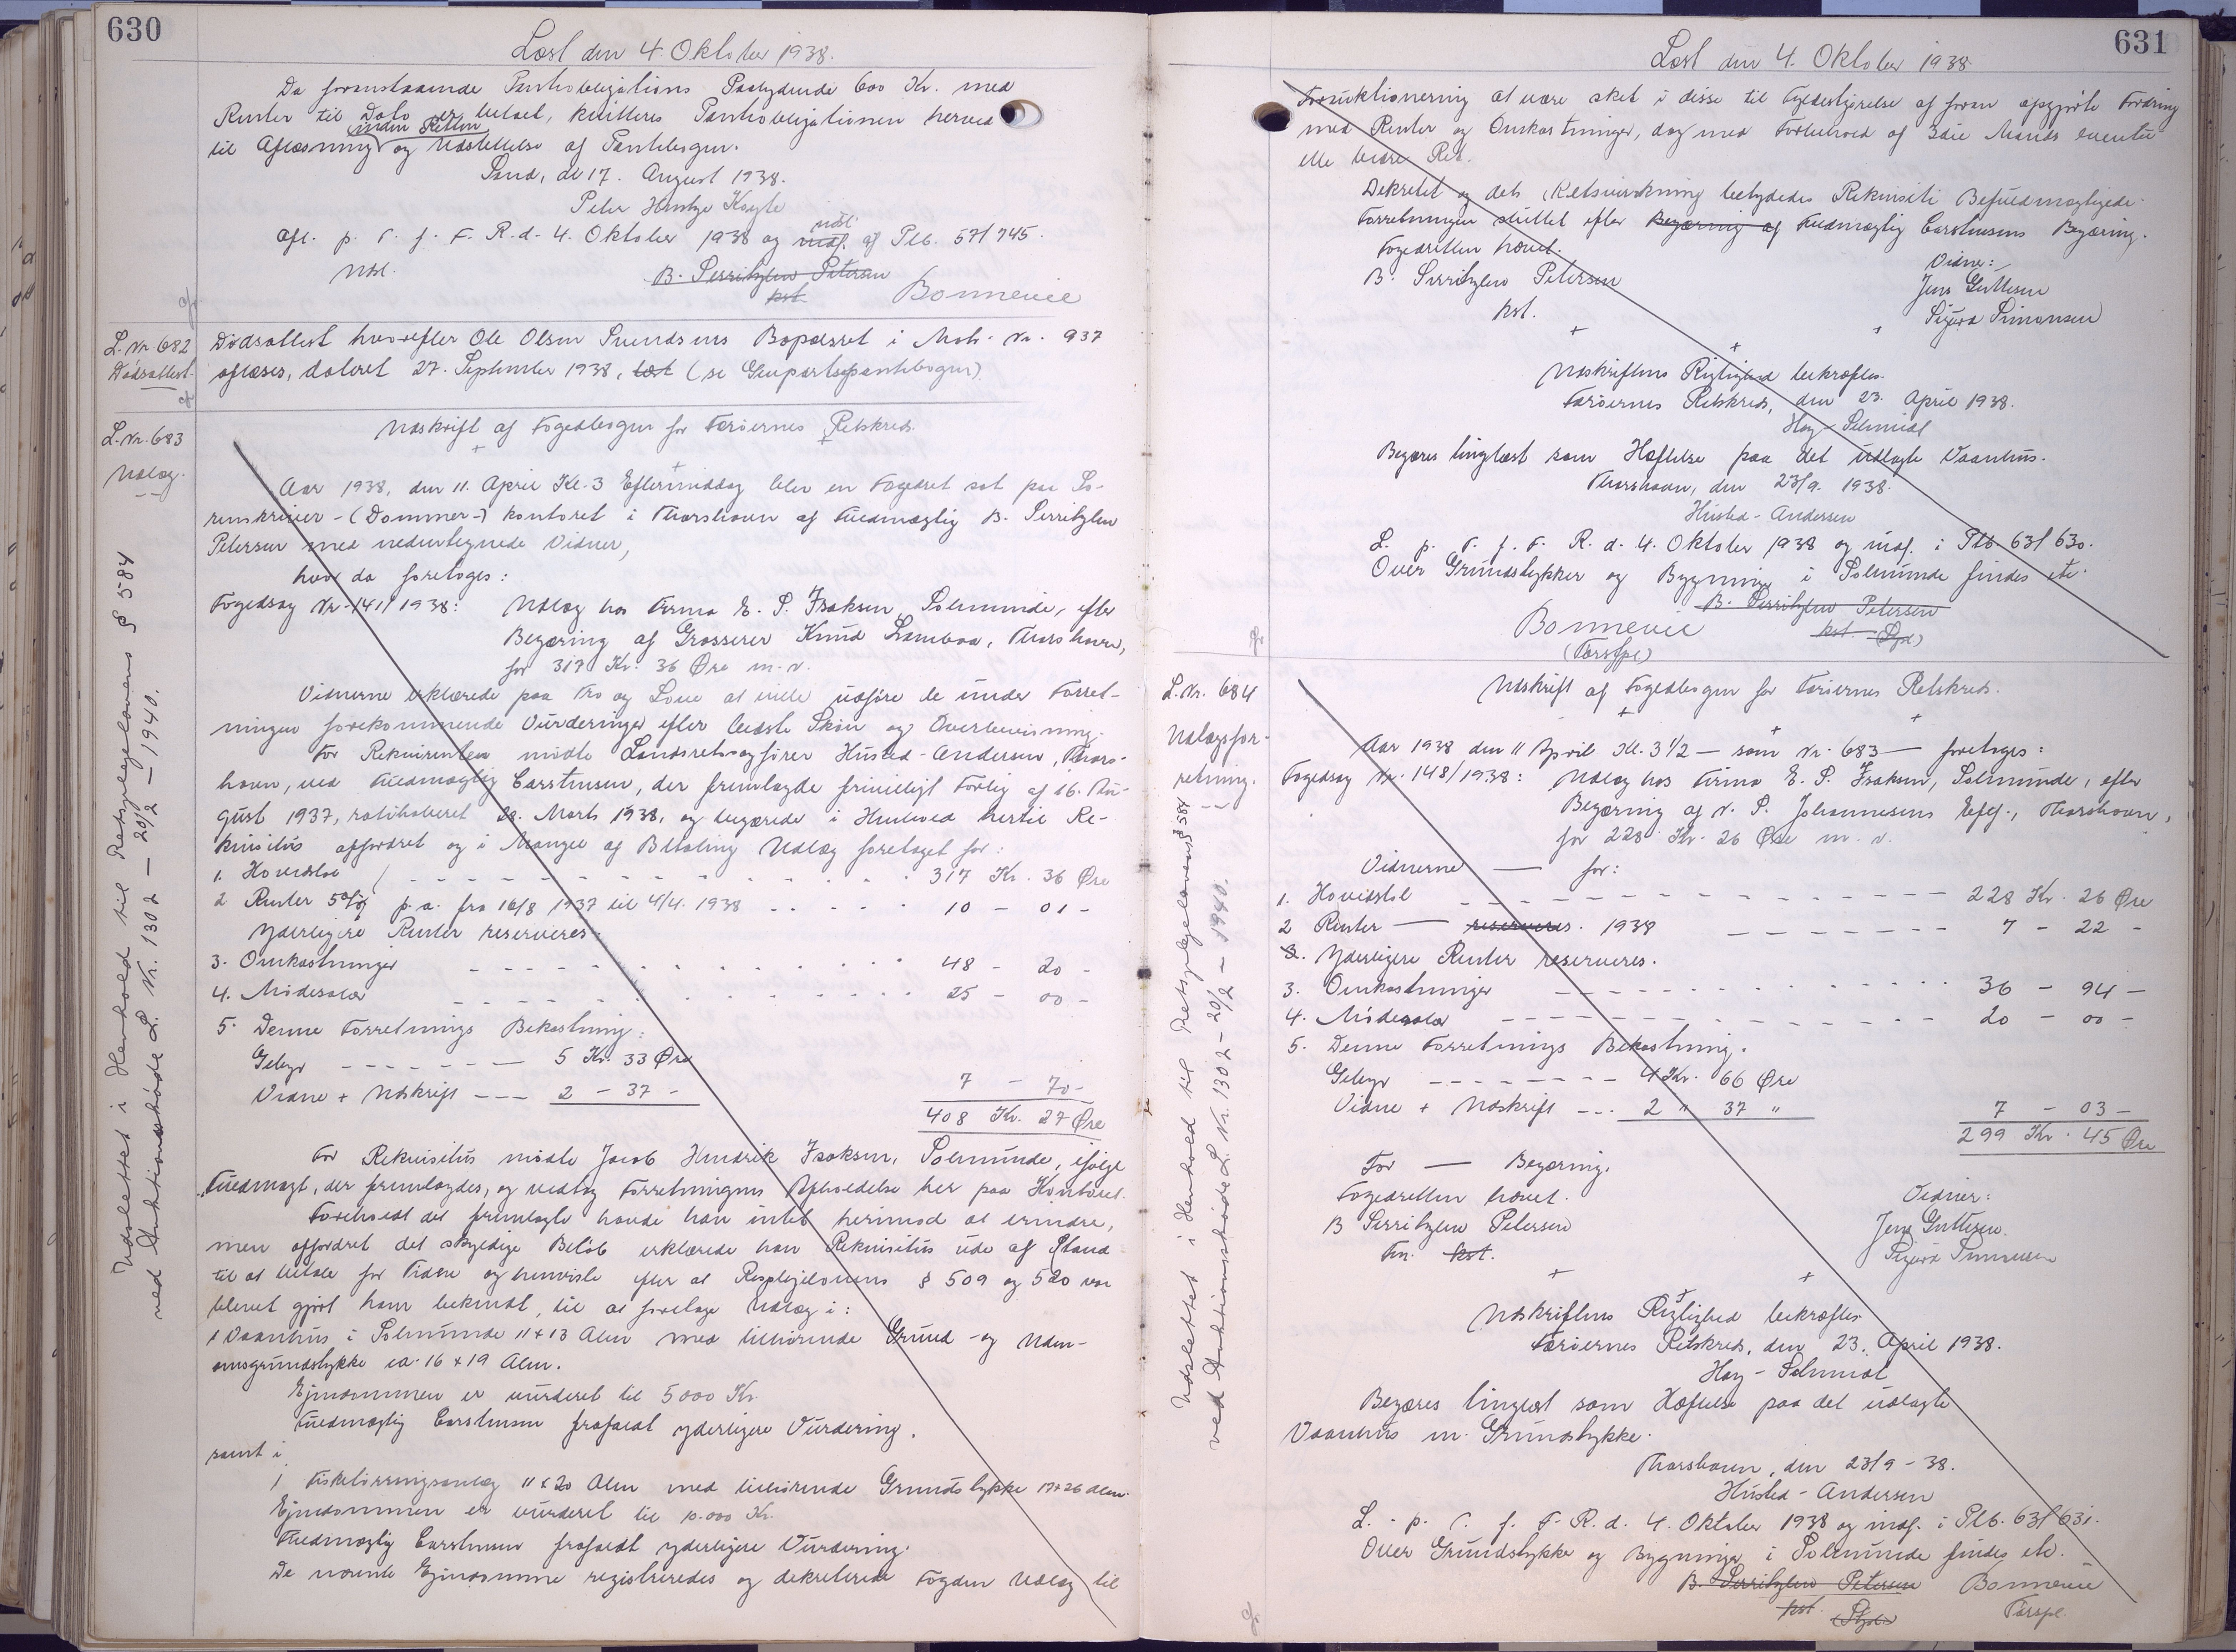 630
Læst den 4 Oktober 1938.
Da foranstaaende Pantobligations Paalydende 600 Kr. med
Renter til Dato er betalt, kvitteres Pantobligationen herved
til Aflæsning inden Retten og Udslettelse af Pantebogen.
Sand, d. 17. August 1938.
Peter
Afl. p. T. f. F. R. d. 4. Oktober 1938 og indf. udsl. af Ptb. 57/745.
Udsl.
B. Serritzlew Petersen
kst.
Bonnevie
L. Nr. 682
Dødsattest
Dødsattest hvorefter Ole Olsen Bopælsret i Matr. Nr. 937
aflæses, dateret 27. September 1938, læst (se Genpartspantebogen)
L. Nr. 683
Udlæg.
Udslettet i Henhold til Retsplejelovens § 584
ved Auktionsskøde L. Nr. 1302 — 20/2 — 1940.
Udskrift af Fogedbogen for Færøernes Retskreds.
Aar 1938, den 11. April Kl. 3 Eftermiddag blev en Fogedret sat paa So-
renskriver- (Dommer-) kontoret i Thorshavn af Fuldmægtig B. Serritzlew
Petersen med nedentegnede Vidner,
hvor da foretoges:
Fogedsag Nr. 141/1938: Udlæg hos Firma E. S. Isaksen, Solmunde, efter
Begæring af Grosserer Knud Lamboa, Thorshavn,
for 317 Kr. 36 Øre m. v.
Vidnerne erklærede paa Tro og Love at ville udføre de under Forret-
ningen forekommende Vurderinger efter bedste Skøn og Overbevisning.
For Rekvirenten mødte Landsretssagfører Husted-Andersen, Thors-
havn, ved Fuldmægtig Carstensen, der fremlagde frivilligt Forlig af 16. Au-
gust 1937, ratihaberet 28. Marts 1938, og begærede i Henhold hertil Re-
kvisitus opfordret og i Mangel af Betaling Udlæg foretaget for:
1. Hovedstol 317 Kr. 36 Øre
2 Renter 5% p. a. fra 16/8 1937 til 4/4. 1938 10 - 01 -
Yderligere Renter reserveres.
3. Omkostninger 48 - 20 -
4. Mødesalær 25 - 00 -
5. Denne Forretnings Bekostning:
Gebyr 5 Kr. 33 Øre
Vidne + Udskrift 2 - 37 - 7 - 70 -
408 Kr. 27 Øre
For Rekvisitus mødte Jacob Hendrik Isaksen, Solmunde, ifølge
Fuldmagt, der fremlagdes, og vedtog Forretningens Afholdelse her paa Kontoret.
Foreholdt det fremlagte havde han intet herimod at erindre,
men opfordret det skyldige Beløb erklærede han Rekvisitus ude af Stand
til at betale for Tiden og henviste efter at Rsplejelovens § 509 og 520 var
blevet gjort ham bekendt, til at foretage Udlæg i:
1 Vaanhus i Solmunde 11 x 13 Alen med tilhørende Grund- og Uden-
omsgrundstykke ca. 16 x 19 Alen.
Ejendommen er vurderet til 5000 Kr.
Fuldmægtig Carstensen frafaldt yderligere Vurdering.
samt i
1 Fisketørringsanlæg 11 x 20 Alen med tilhørende Grundstykke 17 x 26 Alen.
Ejendommen er vurderet til 10.000 Kr.
Fuldmægtig Carstensen frafaldt yderligere Vurdering.
De nævnte Ejendomme registreredes og dekreterede Fogden Udlæg til
631
Læst den 4. Oktober 1938.
Forauktionering at være sket i disse til Fyldestgørelse af foran opgjorte Fordring
med Renter og Omkostninger, dog med Forbehold af 3die Mands eventu-
elle bedre Ret.
Dekretet og dets Retsvirkning betydedes Rekvisiti Befuldmægtigede.
Forretningen sluttet efter Begæring af Fuldmægtig Carstensens Begæring.
Fogedretten hævet.
B. Serritzlew Petersen
kst.
Vidner:
Jens Guttesen
Sigurd Simonsen
Udskriftens Rigtighed bekræftes.
Færøernes Retskreds, den 23. April 1938.
Hoy-Schmidt
Begæres tinglæst som Hæftelse paa det udlagte Vaanhus.
Thorshavn, den 23/9. 1938.
Husted-Andersen
L. p. T. f. F. R. d. 4. Oktober 1938 og indf. i Ptb. 63/630.
Over Grundstykker og Bygninger i Solmunde findes etc.
B. Serritzlew Petersen
kst
Bonnevie
L. Nr. 684
Udlægsfor-
retning.
Udslettet i Henhold til Retsplejelovens § 584
ved Auktionsskøde L. Nr. 1302 - 20/2 - 1940.
Udskrift af Fogedbogen for Færøernes Retskreds.
Aar 1938 den 11 April Kl. 3 1/2 — som Nr. 683 — foretoges:
Fogedsag Nr. 148/1938: Udlæg hos Firma E. S. Isaksen, Solmunde, efter
Begæring af V. P. Johannesens Eftf., Thorshavn,
for 228 Kr. 26 Øre m. v.
Vidnerne — for:
1. Hovedstol 228 Kr. 26 Øre
2 Renter — reserveres. 1938 7 - 22 -
3. Yderligere Renter reserveres.
3. Omkostninger 36 - 94 -
4. Mødesalær 20 - 00 -
5. Denne Forretnings Bekostning.
Gebyr 4 Kr. 66 Øre
Vidne + Udskrift 2 " 37 " 7 - 03 -
299 Kr. 45 Øre
For — Begæring.
Fogedretten hævet.
B Serritzlew Petersen
Fm. kst.
Vidner:
Jens Guttesen.
Sigurd Simonsen
Udskriftens Rigtighed bekræftes
Færøernes Retskreds, den 23. April 1938.
Hoy-Schmidt
Begæres tinglæst som Hæftelse paa det udlagte
Vaanhus m. Grundstykke.
Thorshavn, den 23/9 - 38.
Husted-Andersen
L. p. T. f. F. R. d. 4. Oktober 1938 og indf. i Ptb. 63/631.
Over Grundstykke og Bygninger i Solmunde findes etc.
B. Serritzlew Petersen Bonnevie
kst.